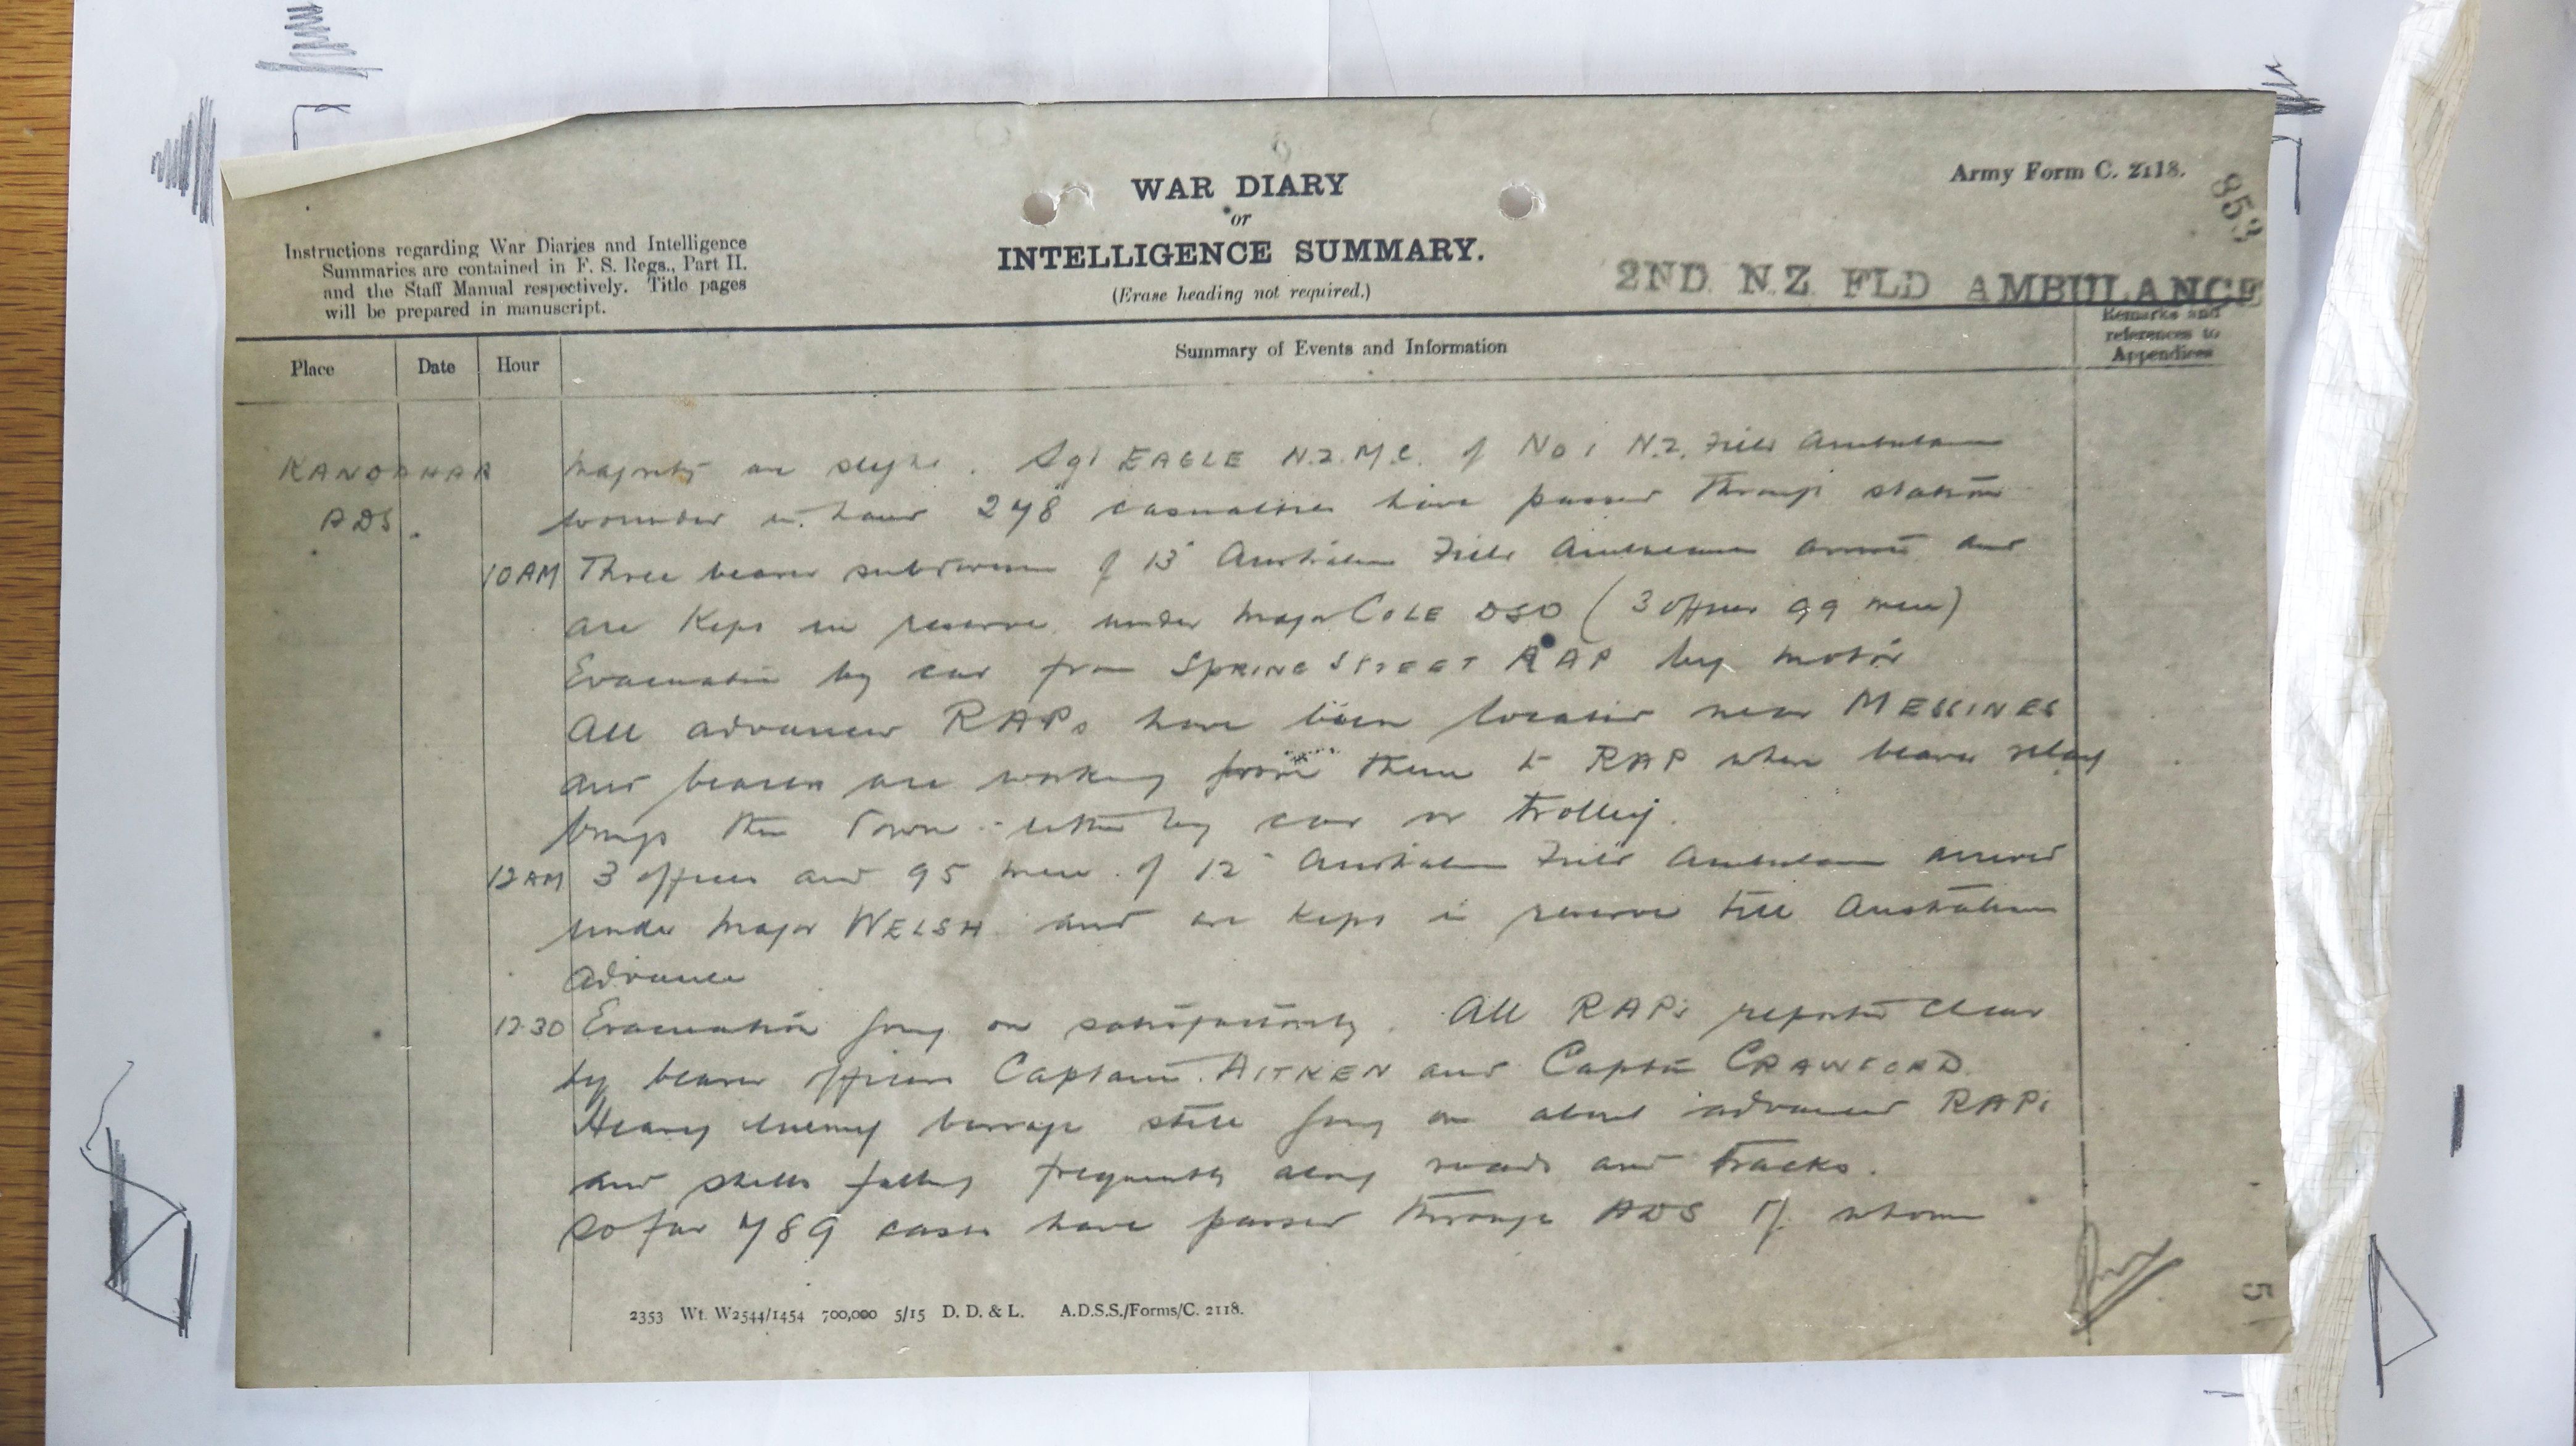 Army Form C. 2118.
853
WAR DIARY
or
INTELLIGENCE SUMMARY.
(Erase heading not required.)
Instructions regarding War Diaries and Intelligence
Summaries are contained in F. S. Regs., Part II.
and the Staff Manual respectively. Title pages
will be prepared in manuscript.
2ND. N.Z. FLD AMBULANCE
Place
Date
Hour
Summary of Events and Information
Remarks and
references to
Appendices
KANDAHAR
ADS.
Majority are slight. Sgt EAGLE N.Z.M.C. of No 1 N.Z. Field Ambulance
wounded in hand 248 casualties have passed through station
10AM Three bearer subdivisions of 13 Australian Field Ambulance arrived and
are kept in reserve under Major COLE DSO (3 officers 99 men)
Evacuation by car from SPRING STREET RAP by motor
All advanced RAPs have been located near MESSINES
and bearers are working from them to RAP when bearer relay
brings them down either by car or trolley.
12AM 3 officers and 95 men of 12 Australian Field Ambulance arrived
under Major WELSH and are kept in reserve till Australian
advance
12.30 Evacuation going on satisfactorily. All RAPs reported clear
by bearer officers Captain AITKEN and Captain CRAWFORD.
Heavy enemy barrage still going on about advanced RAPs
and shells falling frequently along roads and tracks.
So far 489 cases have passed through ADS of whom
2353 Wt. W2544/1454 700,000 5/15 D. D. & L. A.D.S.S./Forms/C. 2118.
5